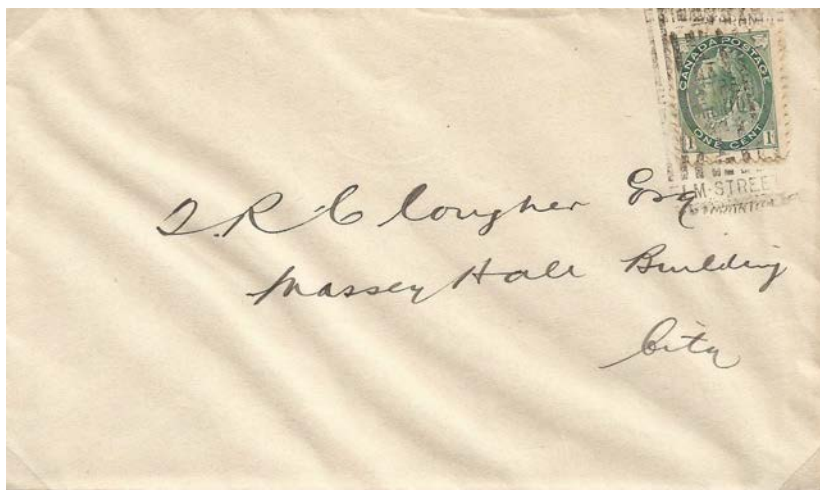 CANADA POSTAGE
1 ONE CENT 1
LM-STREET
J. R. Clougher Esq
Massey Hall Building
City